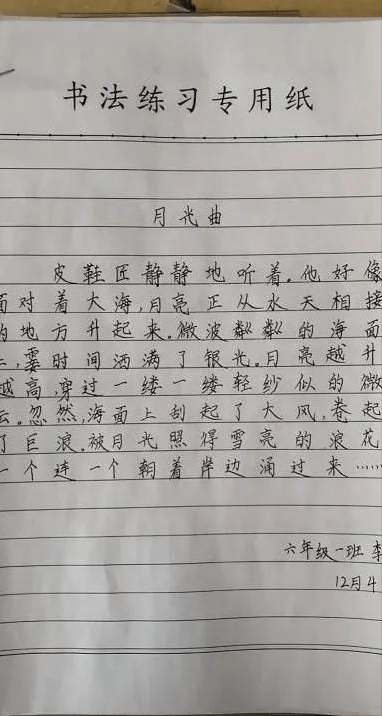 书法练习专用纸
月光曲
皮鞋匠静静地听着。他好像
面对着大海,月亮正从水天相接
的地方升起来。微波粼粼的海面
上,霎时间洒满了银光。月亮越升
越高,穿过一缕一缕轻纱似的微
云。忽然,海面上刮起了大风,卷起
了巨浪。被月光照得雪亮的浪花
一个连一个朝着岸边涌过来……
六年级一班 李
12月4